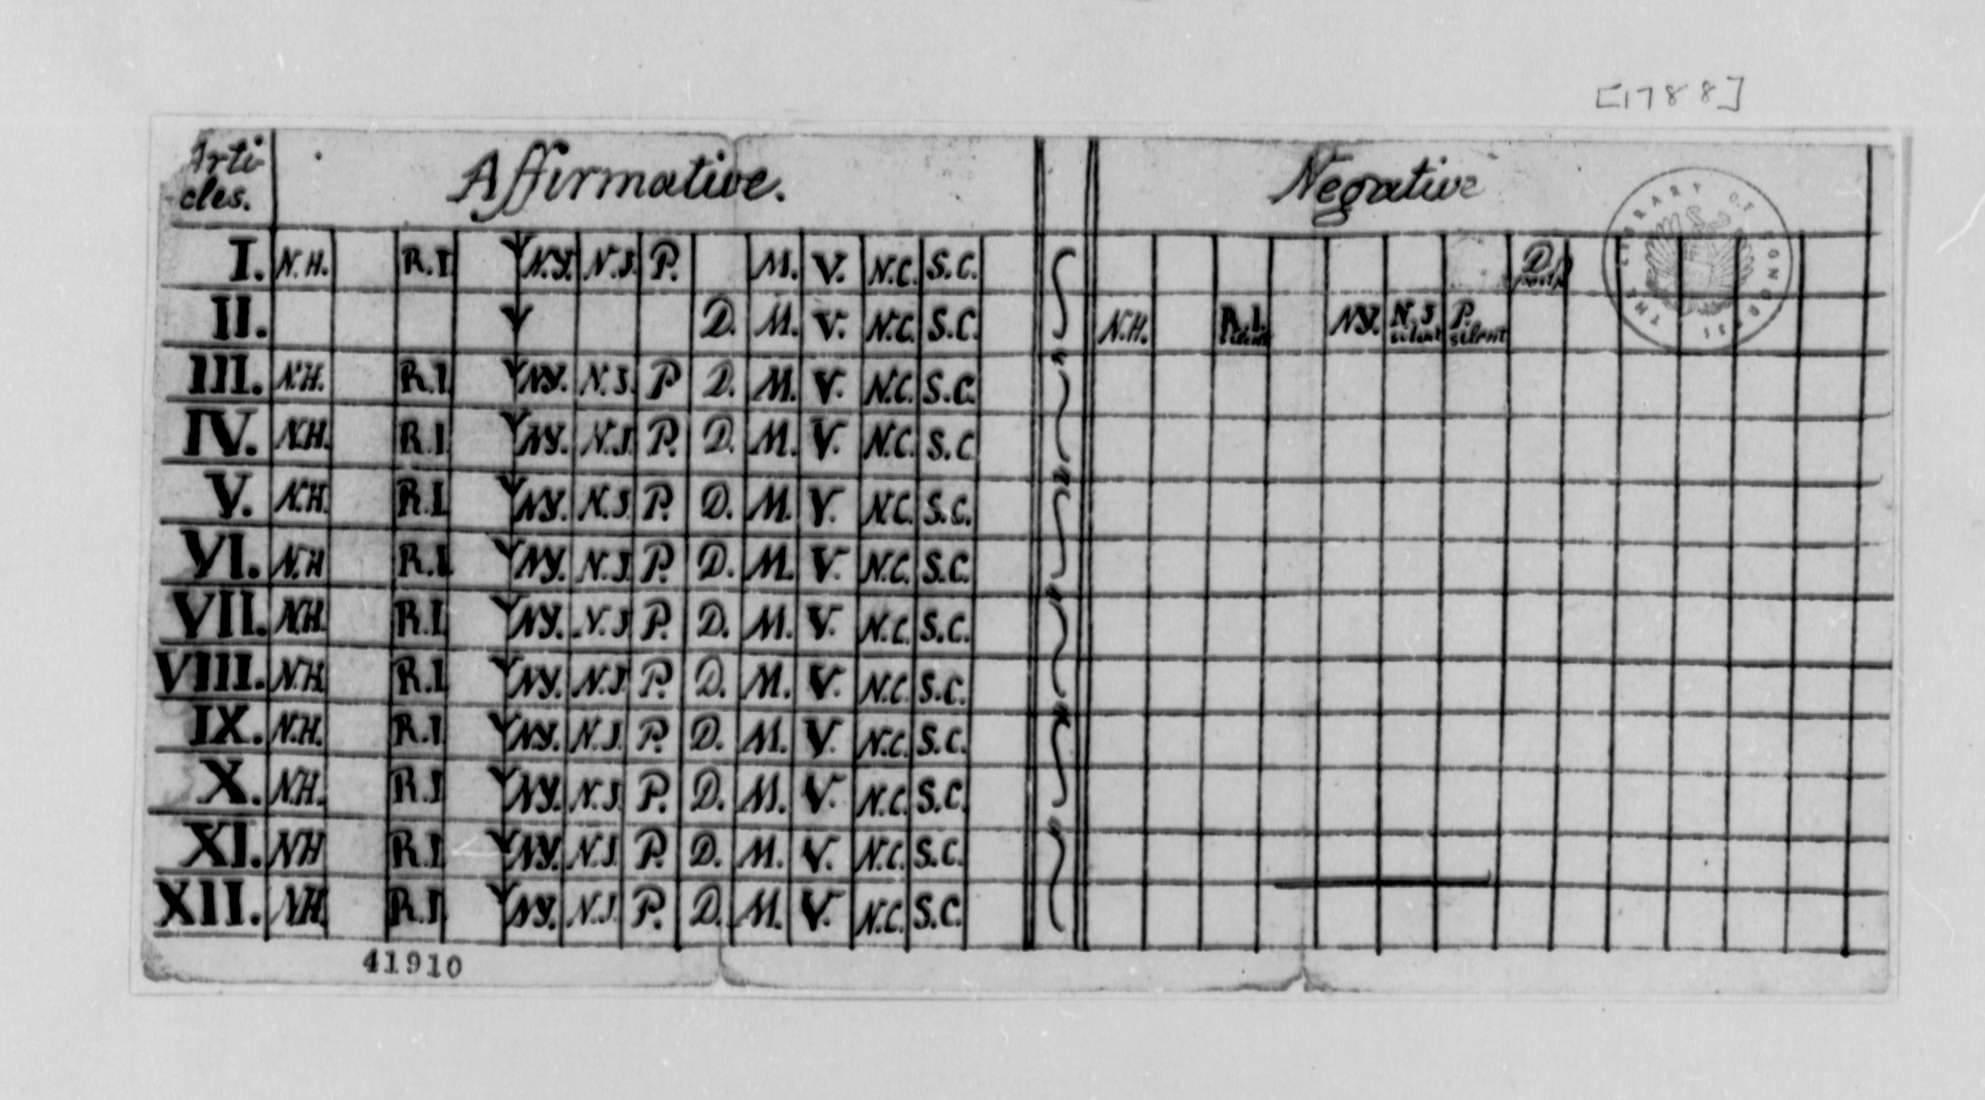 [1788]
Arti
cles.
Affirmative.
Negative
I. N.H. R.I. Y N.Y. N.J. P. M. V. N.C. S.C. D.
II. Y D. M. V. N.C. S.C. N.H. R.I. silent N.Y. N.J. silent P. silent
III. N.H. R.I. Y N.Y. N.J. P D. M. V. N.C. S.C.
IV. N.H. R.I. Y N.Y. N.J. P. D. M. V. N.C. S.C
V. N.H. R.I. Y N.Y. N.J. P. D. M. V. N.C. S.C.
VI. N.H R.I. Y N.Y. N.J. P. D. M. V. N.C. S.C.
VII. N.H. R.I. Y N.Y. N.J. P. D. M. V. N.C. S.C.
VIII. N.H. R.I. Y N.Y. N.J. P. D. M. V. N.C. S.C.
IX. N.H. R.I Y N.Y. N.J. P. D. M. V. N.C. S.C.
X. N.H. R.I Y N.Y. N.J. P. D. M. V. N.C. S.C.
XI. NH R.I Y N.Y. N.J. P. D. M. V. N.C. S.C.
XII. NH. R.I Y N.Y. N.J. P. D. M. V. N.C. S.C.
THE LIBRARY OF CONGRESS
41910